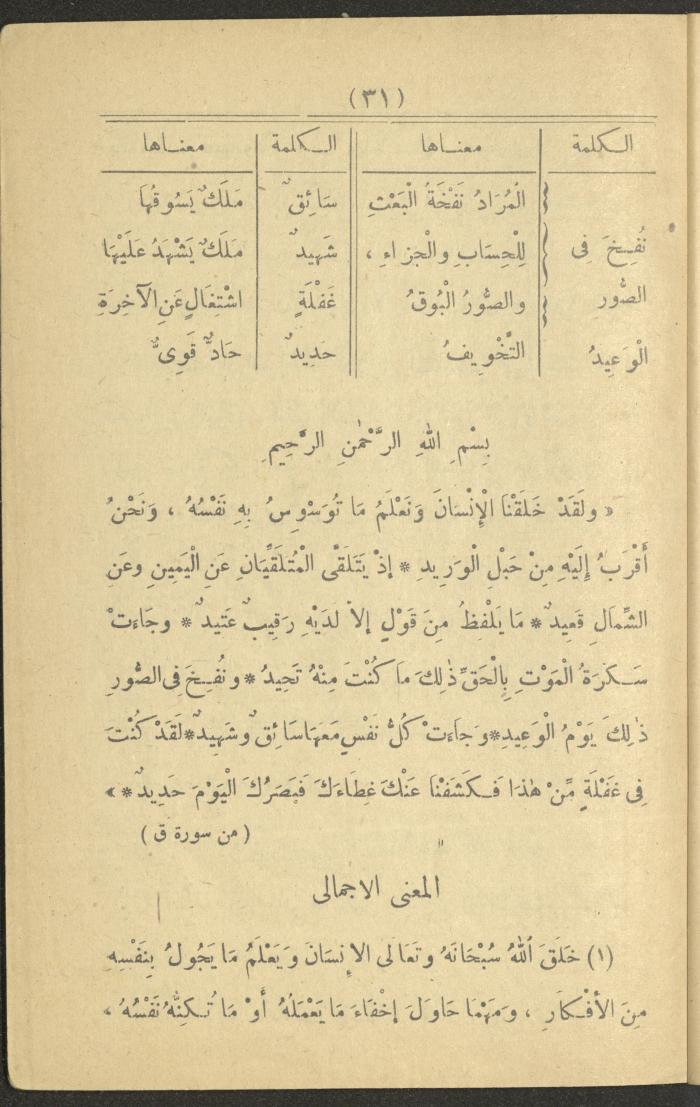 (٣١)
الكلمة معناها الكلمة معناها
الْمُرَادُ نَفْخَةُ الْبَعْثِ سَائِقٌ مَلَكٌ يَسُوقُهَا
نُفِخَ فِى لِلْحِسَابِ والْجزاءِ ، شَهِيدٌ مَلَكٌ يَشْهَدُ عَلَيْهَا
الصُّورِ والصُّورُ الْبُوقُ غَفْلَةٍ اشْتِغَالٍ عَنِ الآخِرَةِ
الْوَعِيدُ التَّخْوِيفُ حَدِيدٌ حَادٌّ قَوِىٌّ
بِسْمِ اللهِ الرَّحْمٰنِ الرَّحِيمِ
« ولَقَدْ خَلَقْنَا الْإِنْسَانَ وَنَعْلَمُ مَا تُوَسْوِسُ بِهِ نَفْسُهُ ، وَنَحْنُ
أَقْرَبُ إِلَيْهِ مِنْ حَبْلِ الْوَرِيدِ * إِذْ يَتَلَقَّى الْمُتَلَقِّيَانِ عَنِ الْيَمِينِ وعَنِ
الشِّمالِ قَعِيدٌ * مَا يَلْفِظُ مِنَ قَوْلٍ إلاَّ لدَيْهِ رَقِيبٌ عَتِيدٌ * وجَاءَتْ
سَكْرَةُ الْمَوْتِ بِالْحَقِّ ذٰلِكَ مَا كُنْتَ مِنْهُ تَحِيدُ * ونُفِخَ فى الصُّورِ
ذٰلِكَ يَوْمُ الْوَعِيدِ * وَجَاءَتْ كُلُّ نَفْسٍ مَعَهَا سَائِقٌ وشَهِيدٌ * لَقَدْ كُنْتَ
فِى غَفْلَةٍ مِّنْ هٰذَا فَكَشَفْنَا عَنْكَ غِطَاءَكَ فَبَصَرُكَ الْيَوْمَ حَدِيدٌ * »
( من سورة ق )
المعنى الاجمالى
(١) خَلَقَ اللهُ سُبْحَانَهُ وتَعَالَى الإنسَانَ وَيَعْلَمُ مَا يَجُولُ بِنَفْسِهِ
مِنَ الأَفْكارِ ، وَمَهْمَا حَاوَلَ إِخْفَاءَ مَا يَعْمَلُهُ أَوْ مَا تُكِنُّهُ نَفْسُهُ ،